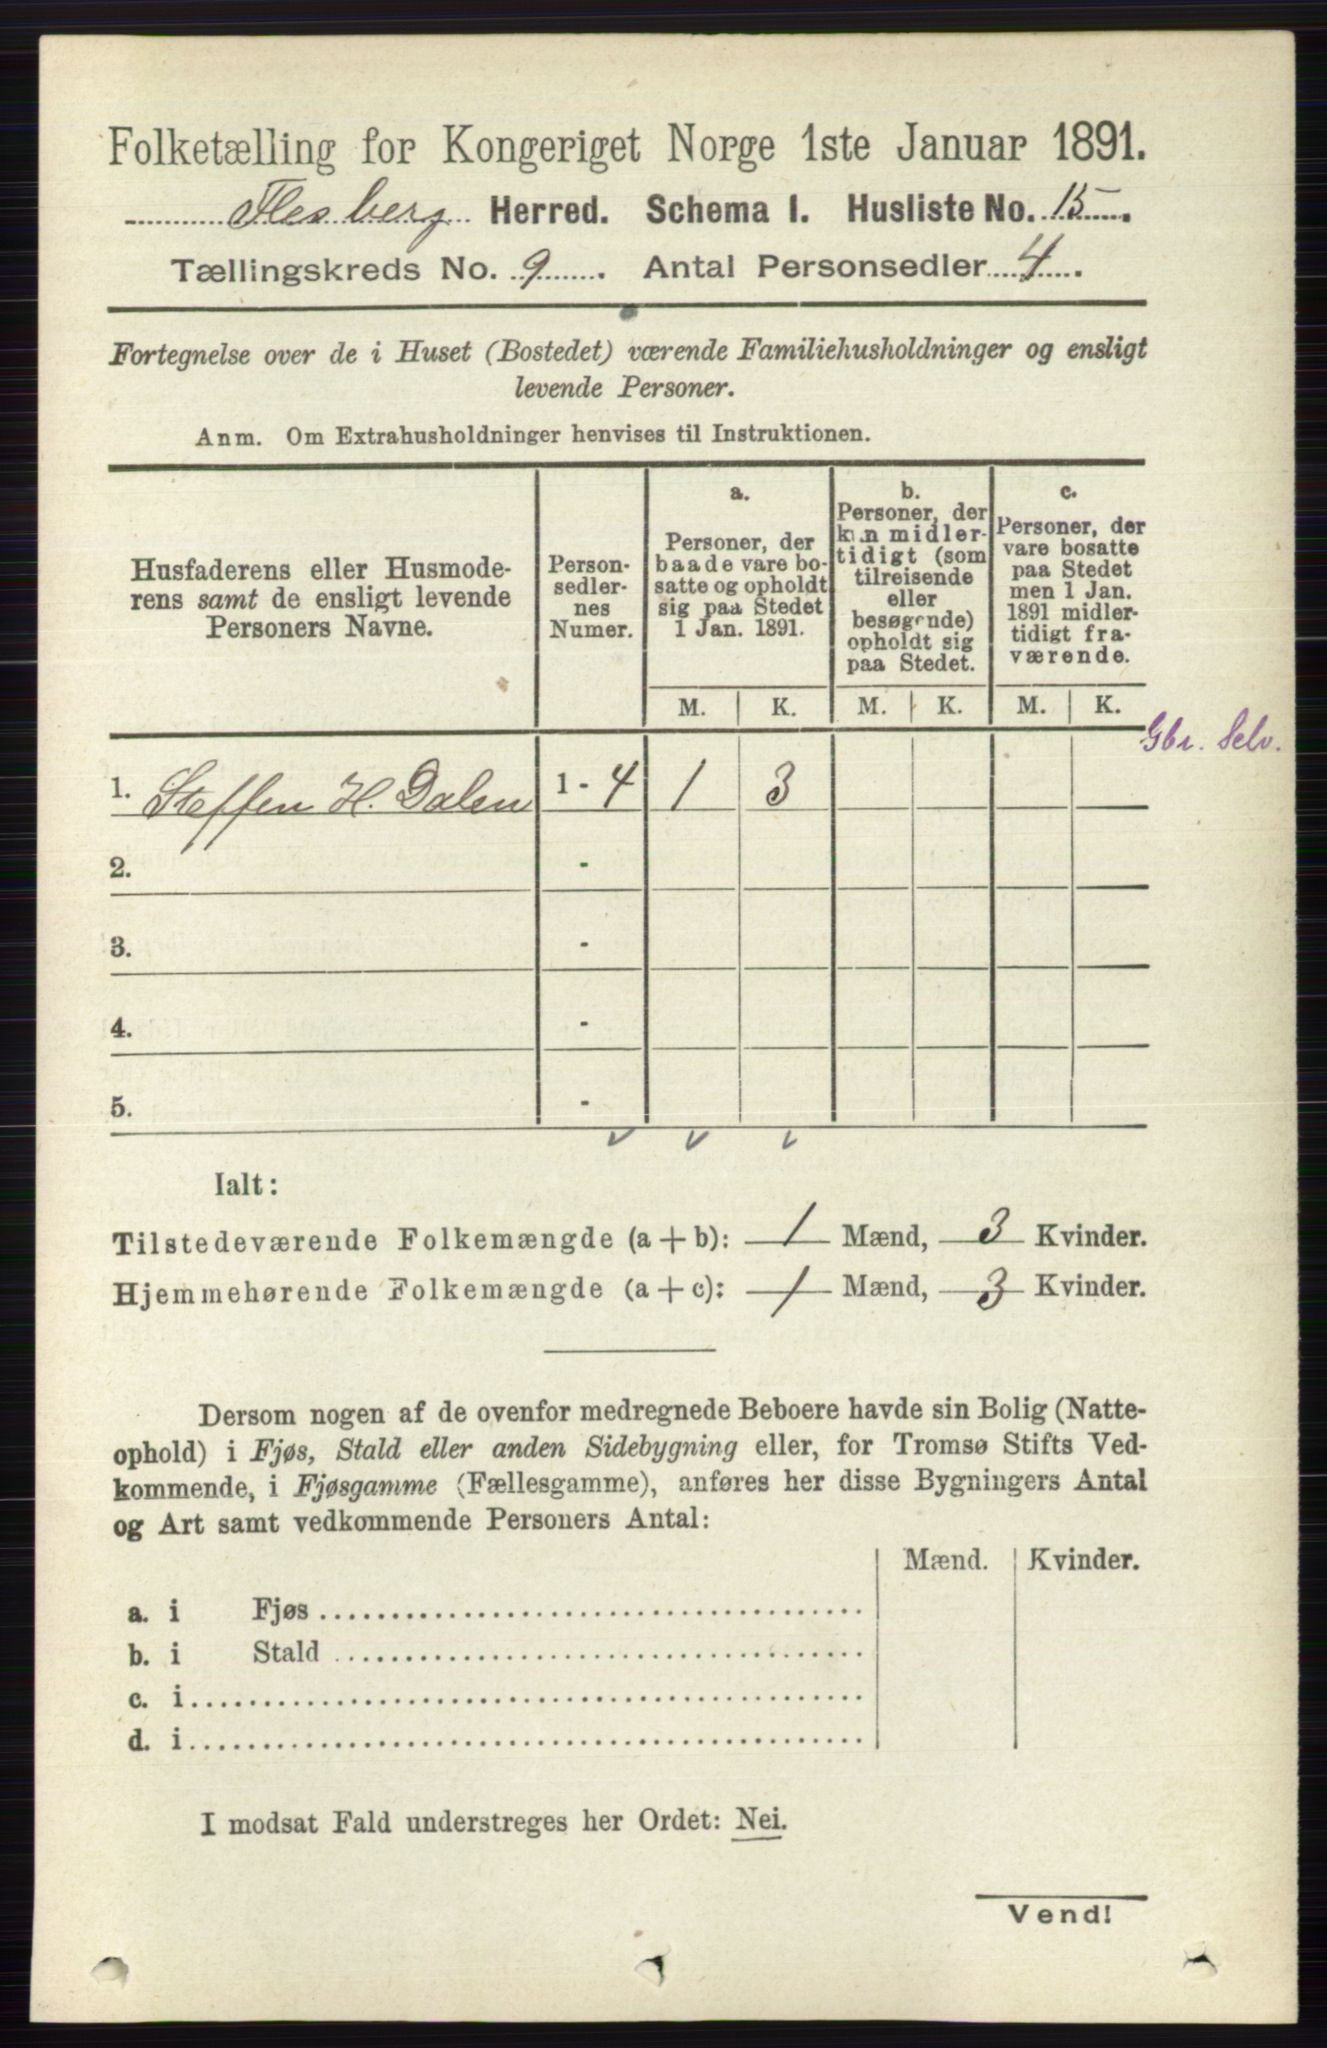 Folketælling for Kongeriget Norge 1ste Januar 1891.
Flesberg Herred. Schema I. Husliste No. 15
Tællingskreds No. 9. Antal Personsedler 4.
Fortegnelse over de i Huset (Bostedet) værende Familiehusholdninger og ensligt
levende Personer.
Anm. Om Extrahusholdninger henvises til Instruktionen.
Husfaderens eller Husmode-
rens samt de ensligt levende
Personers Navne.
Person-
sedler-
nes
Numer.
a.
Personer, der
baade vare bo-
satte og opholdt
sig paa Stedet
1 Jan. 1891.
b.
Personer, der
kun midler-
tidigt (som
tilreisende
eller
besøgende)
opholdt sig
paa Stedet.
c.
Personer, der
vare bosatte
paa Stedet
men 1 Jan.
1891 midler-
tidigt fra-
værende.
M. K. M. K. M. K.
Gbr. Selv.
1. Steffen H. Dalen 1 - 4 1 3
2. -
3. -
4. -
5. -
Ialt:
Tilstedeværende Folkemængde (a + b): 1 Mænd, 3 Kvinder.
Hjemmehørende Folkemængde (a + c): 1 Mænd, 3 Kvinder.
Dersom nogen af de ovenfor medregnede Beboere havde sin Bolig (Natte-
ophold) i Fjøs, Stald eller anden Sidebygning eller, for Tromsø Stifts Ved-
kommende, i Fjøsgamme (Fællesgamme), anføres her disse Bygningers Antal
og Art samt vedkommende Personers Antal:
Mænd. Kvinder.
a. i Fjøs
b. i Stald
c. i
d. i
I modsat Fald understreges her Ordet: Nei.
Vend!